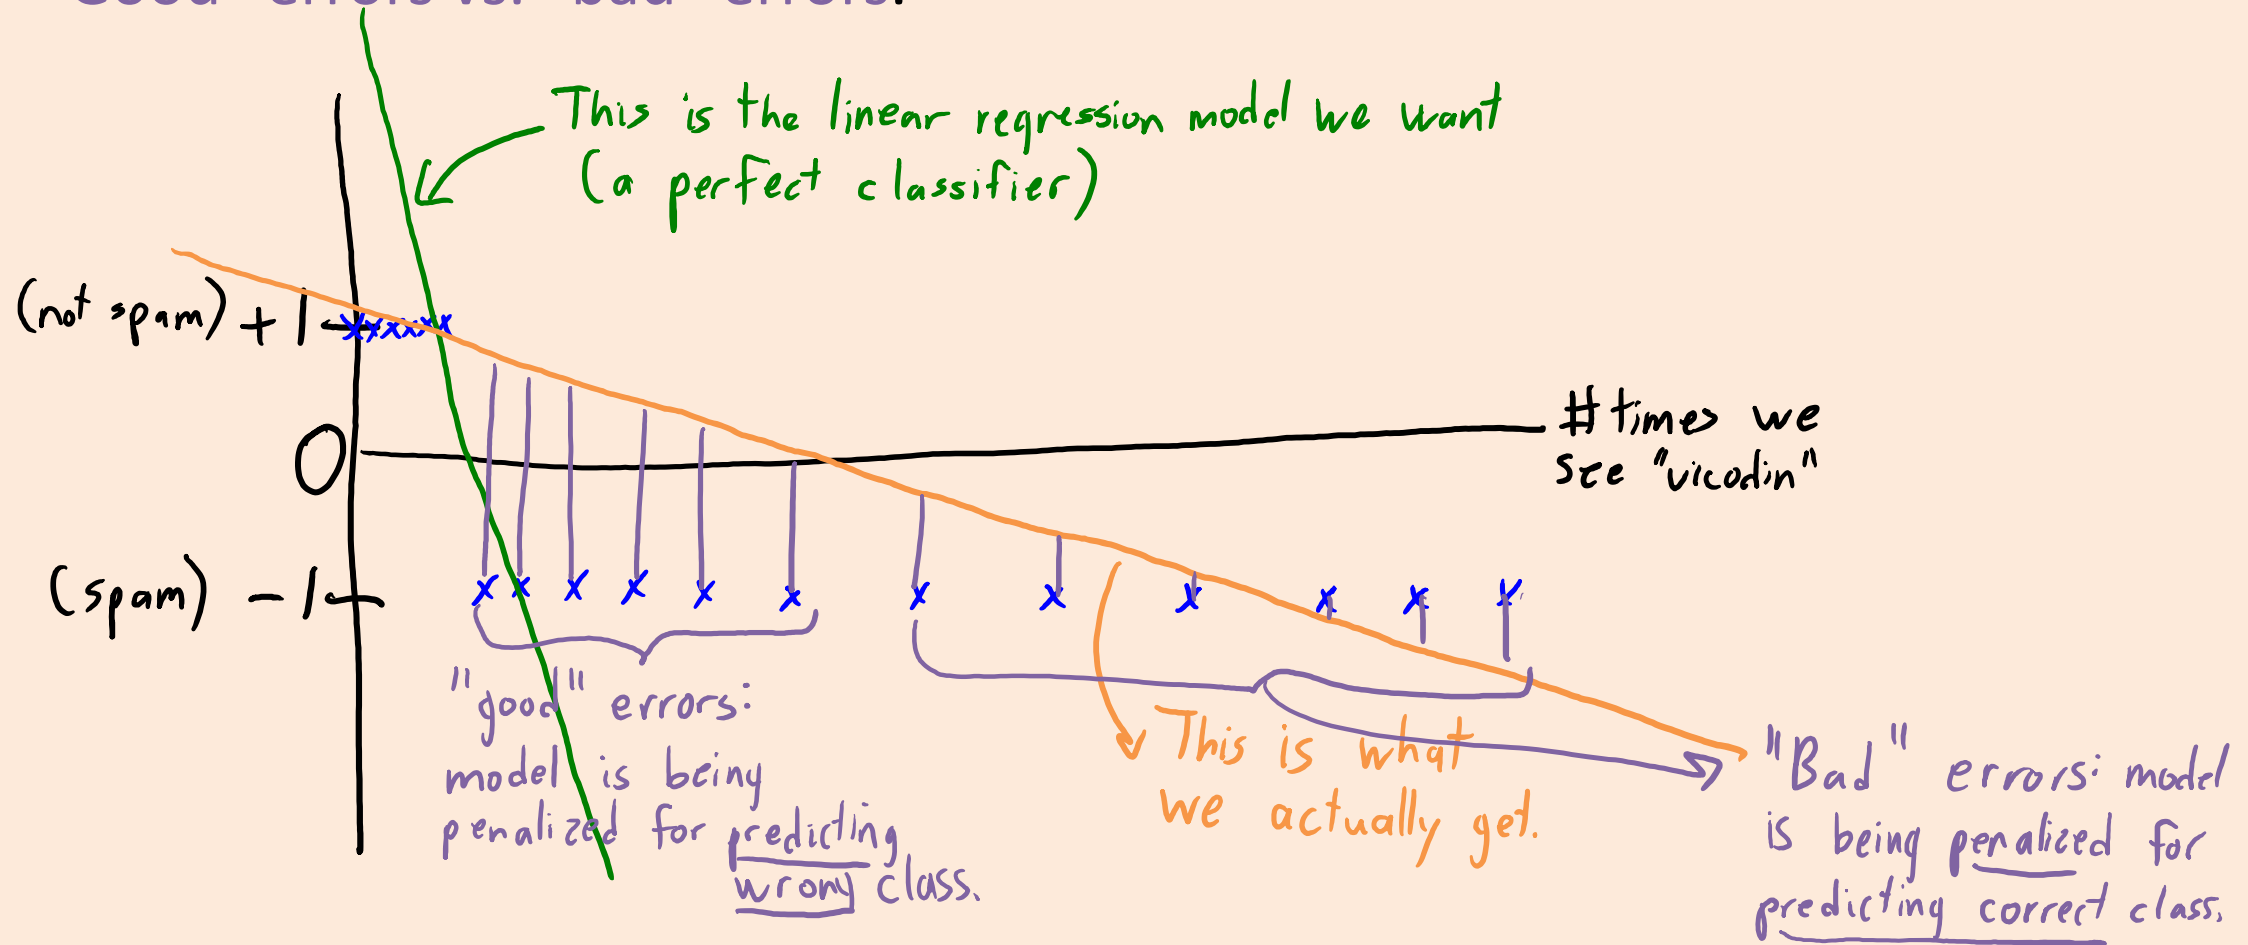 "Good" errors vs. "bad" errors:
This is the linear regression model we want
(a perfect classifier)
(not spam) +1
0
# times we
see "vicodin"
(spam) -1
"good" errors:
model is being
penalized for predicting
wrong class.
This is what
we actually get.
"Bad" errors: model
is being penalized for
predicting correct class.